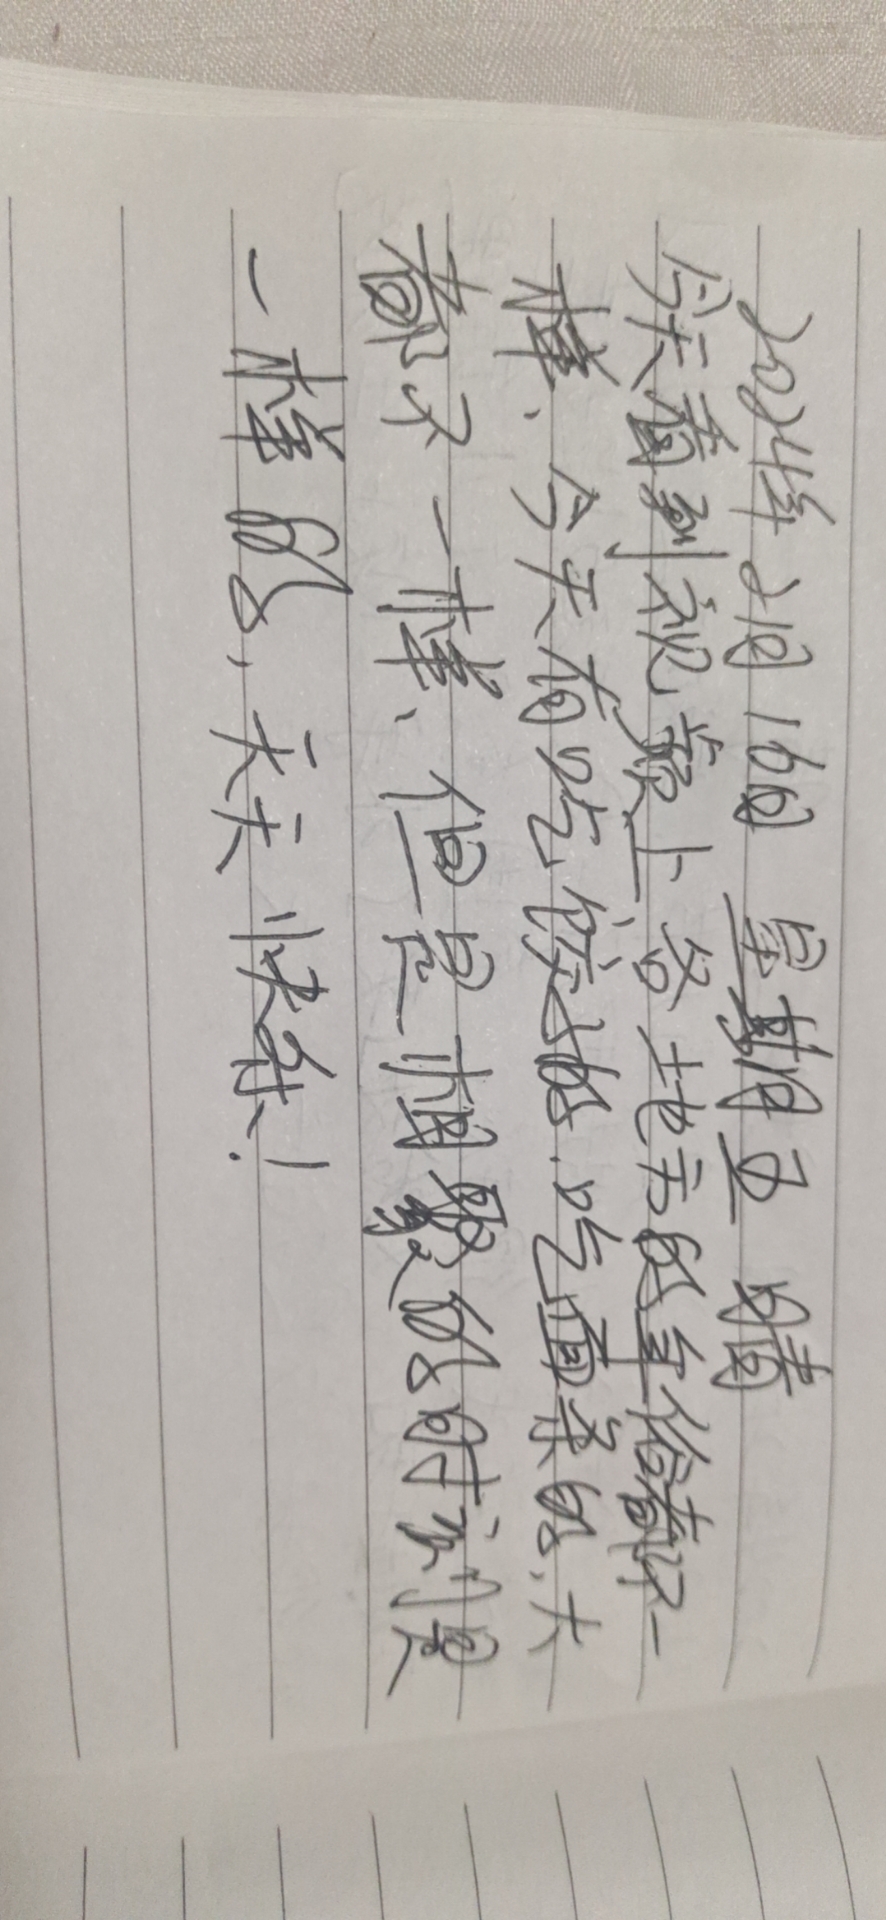 2024年2月16日 星期五 晴
今天看到视频上各地方的年俗都不一
样、今天有吃饺子的.吃面条的,大
都不一样、但是相聚的时刻是
一样的,天天快乐!